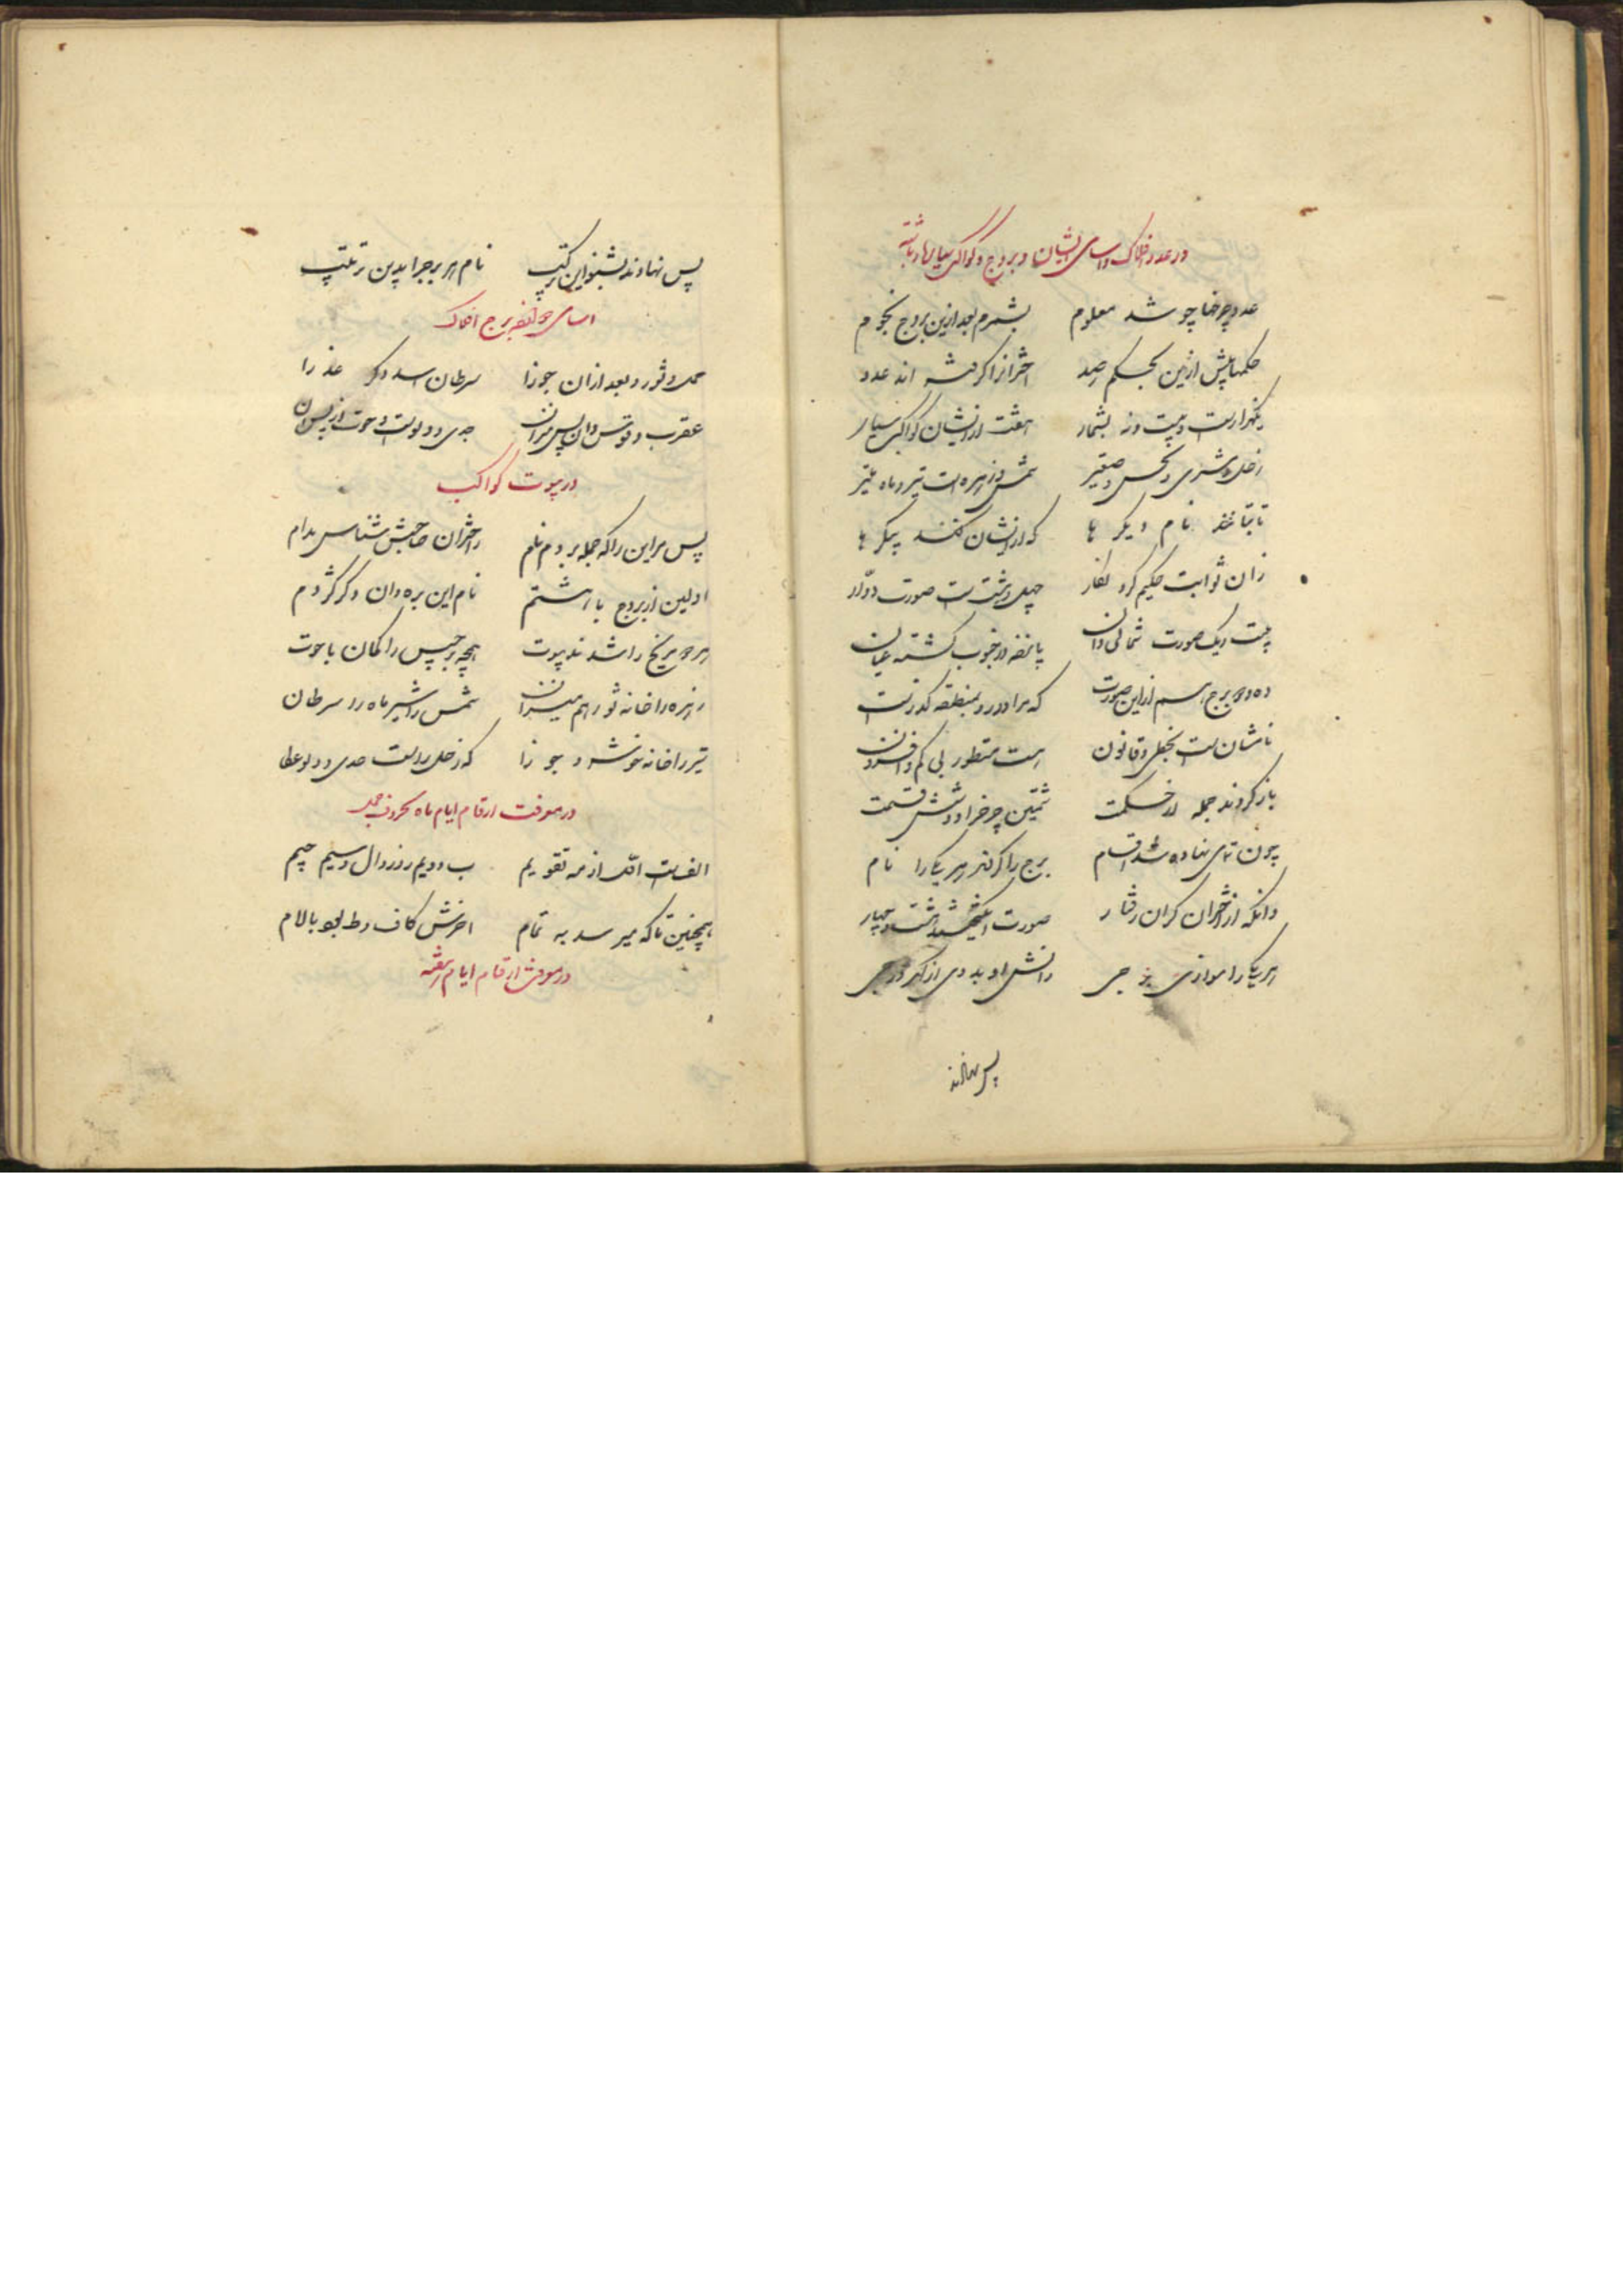 در عدد افلاک و اسامی ایشان و بروج و کواکب سیاره و ثابته
عدد چرخها چو شد معلوم بشمرم بعد ازین بروج نجوم
حکما پیش ازین بحکم رصد اختران را گرفته اند عدد
یکهزارست و بیست و نه بشمار هفت از ایشان کواکب سیار
زحل و مشتری و نحس صغیر شمس و زهره است تیر و ماه منیر
ثابتاتند نام دیگر ها که از ایشان کنند پیکر ها
زان ثوابت حکیم کرد نظار چهل و هشت است صورت دوار
بیست و یک صورت شمالی دان پانزده در جنوب گشته عیان
ده و دو برج اسم از این صورت که مرا دور و بمنطقه گذرست
نامشان است بخیل و قانون هست مسطور بی کم و افزون
باز کردند جمله از حکمت ثمین چرخ را دو شش قسمت
چون بنهاده شد اقسام برج را کردند هر یک را نام
وانکه از اختران گران رفتار صورت هشت و چهار
هر یک را موازی برجی دانش او بدوی از درجی
پس نهادند
پس نهادند بشنو این ترکیب نام هر برج را بدین ترتیب
اسامی دوازده برج افلاک
حمل و ثور و بعد ازان جوزا سرطان اسد و دگر عذرا
عقرب و قوس دان پس میزان جدی و دلوست و حوت از پس آن
در بیوت کواکب
پس مر این را که جمله بردم نام ز اختران صاحبش شناس مدام
اولین از بروج با هشتم نام این بره دان و دگر گژدم
هر دو مریخ را شدند بیوت همچو برجیس را کمان با حوت
زهره را خانه ثور و هم میزان شمس را شیر ماه را سرطان
تیر را خانه خوشه و جوزا که زحل راست جدی و دلو عطا
در معرفت ارقام ایام ماه بحروف جمل
الف است اول از مه تقویم ب دویم روز و دال و سیم جیم
همچنین تا که میرسد به تمام اخرش کاف و طی بود یا لام
در معرفت ارقام ایام هفته